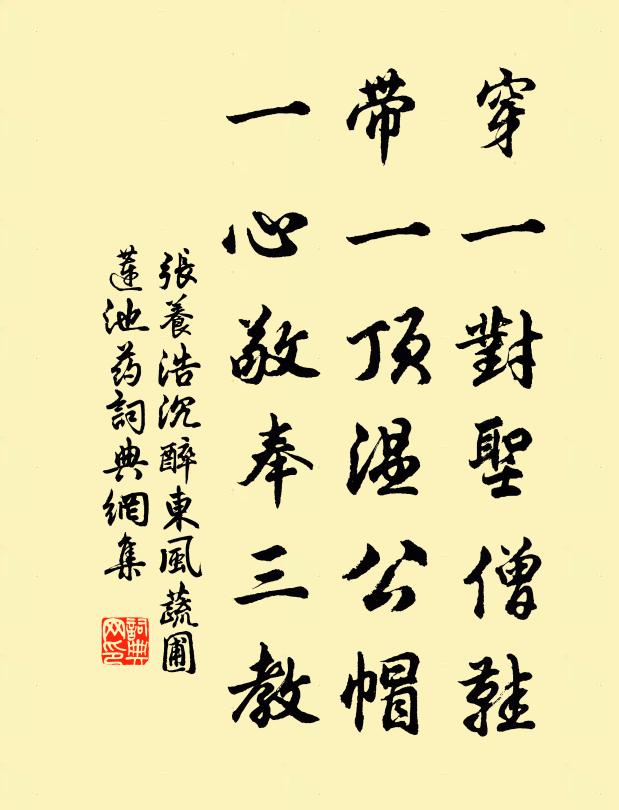 穿一對聖僧鞋
带一顶温公帽
一心敬奉三教
張養浩沉醉東風蔬圃
蓮池药詞典網集
詞典网印